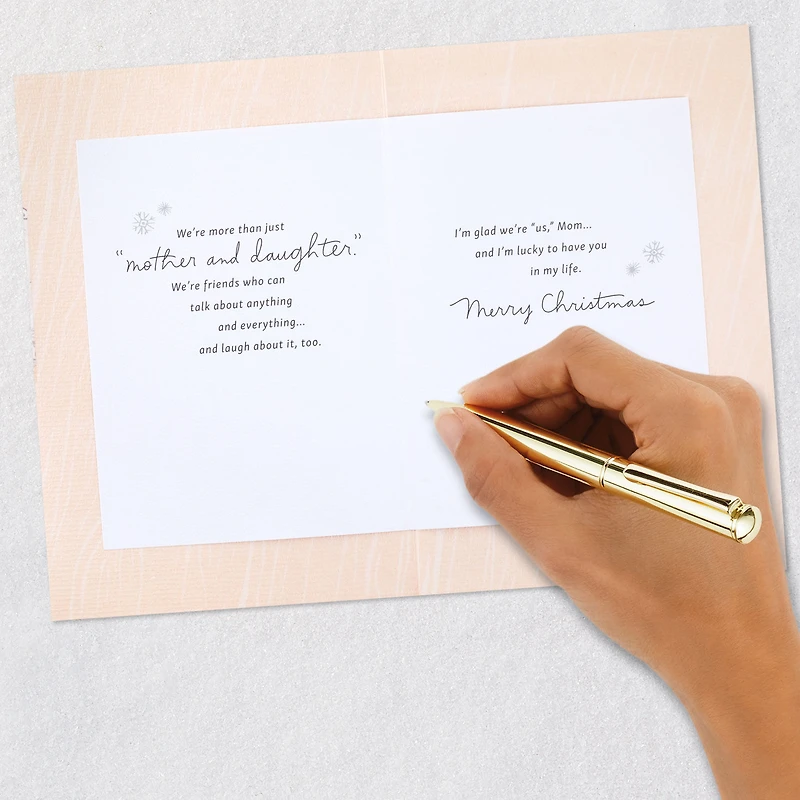 We're more than just
“mother and daughter.”
We're friends who can
talk about anything
and everything...
and laugh about it, too.
I'm glad we're “us,” Mom...
and I'm lucky to have you
in my life.
Merry Christmas